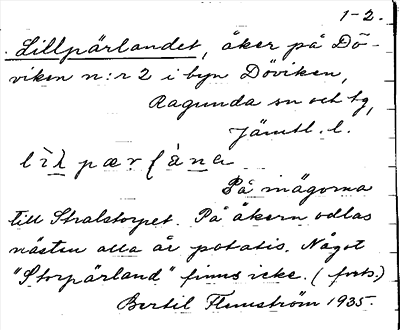 1-2.
Lillpärlandet, åker på Dö-
viken n:r 2 i byn Döviken,
Ragunda sn och tg,
Jämtl. l.
På mägorna
till Stralstorpet. På åkern odlas
nästan alla år potatis. Något
"Storpärland" finns icke. (forts.)
Bertil Flemström 1935.